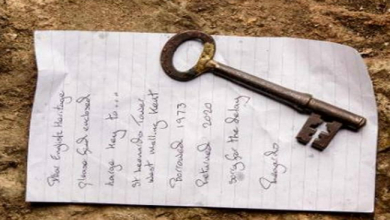 Dear English Heritage
Please find enclosed
large key to...
St Leonards Tower
West Malling Kent
Borrowed 1973
Returned 2020
Sorry for the delay
Regards